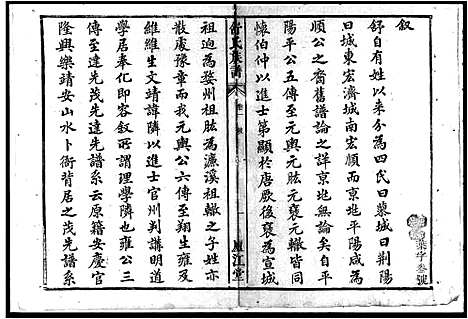 叙
舒自有姓以来分為四氏曰蓼城曰荆陽
曰城東宏濟城南宏順而京兆平陽咸為
順公之裔舊譜論之詳京兆無論矣自平
陽平公五傳至元輿元肱元褒元轍皆同
懷伯仲以進士第顯於唐厥後褒為宣城
舒氏族譜
卷一
叙
一
廬江堂
祖迥為婺州祖肱為濂溪祖轍之子姓亦
散處豫章而我元輿公六傳至翔生雍及
維維生文靖諱隣以進士官州判講明道
學居奉化即容叙所謂理學隣也雍公三
傳至達先茂先達先譜系云原籍安慶官
隆興樂靖安山水卜衙背居之茂先譜系